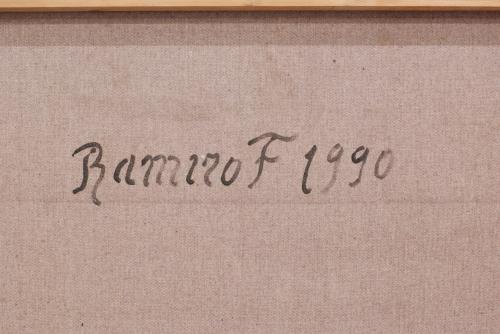 Ramiro F 1990